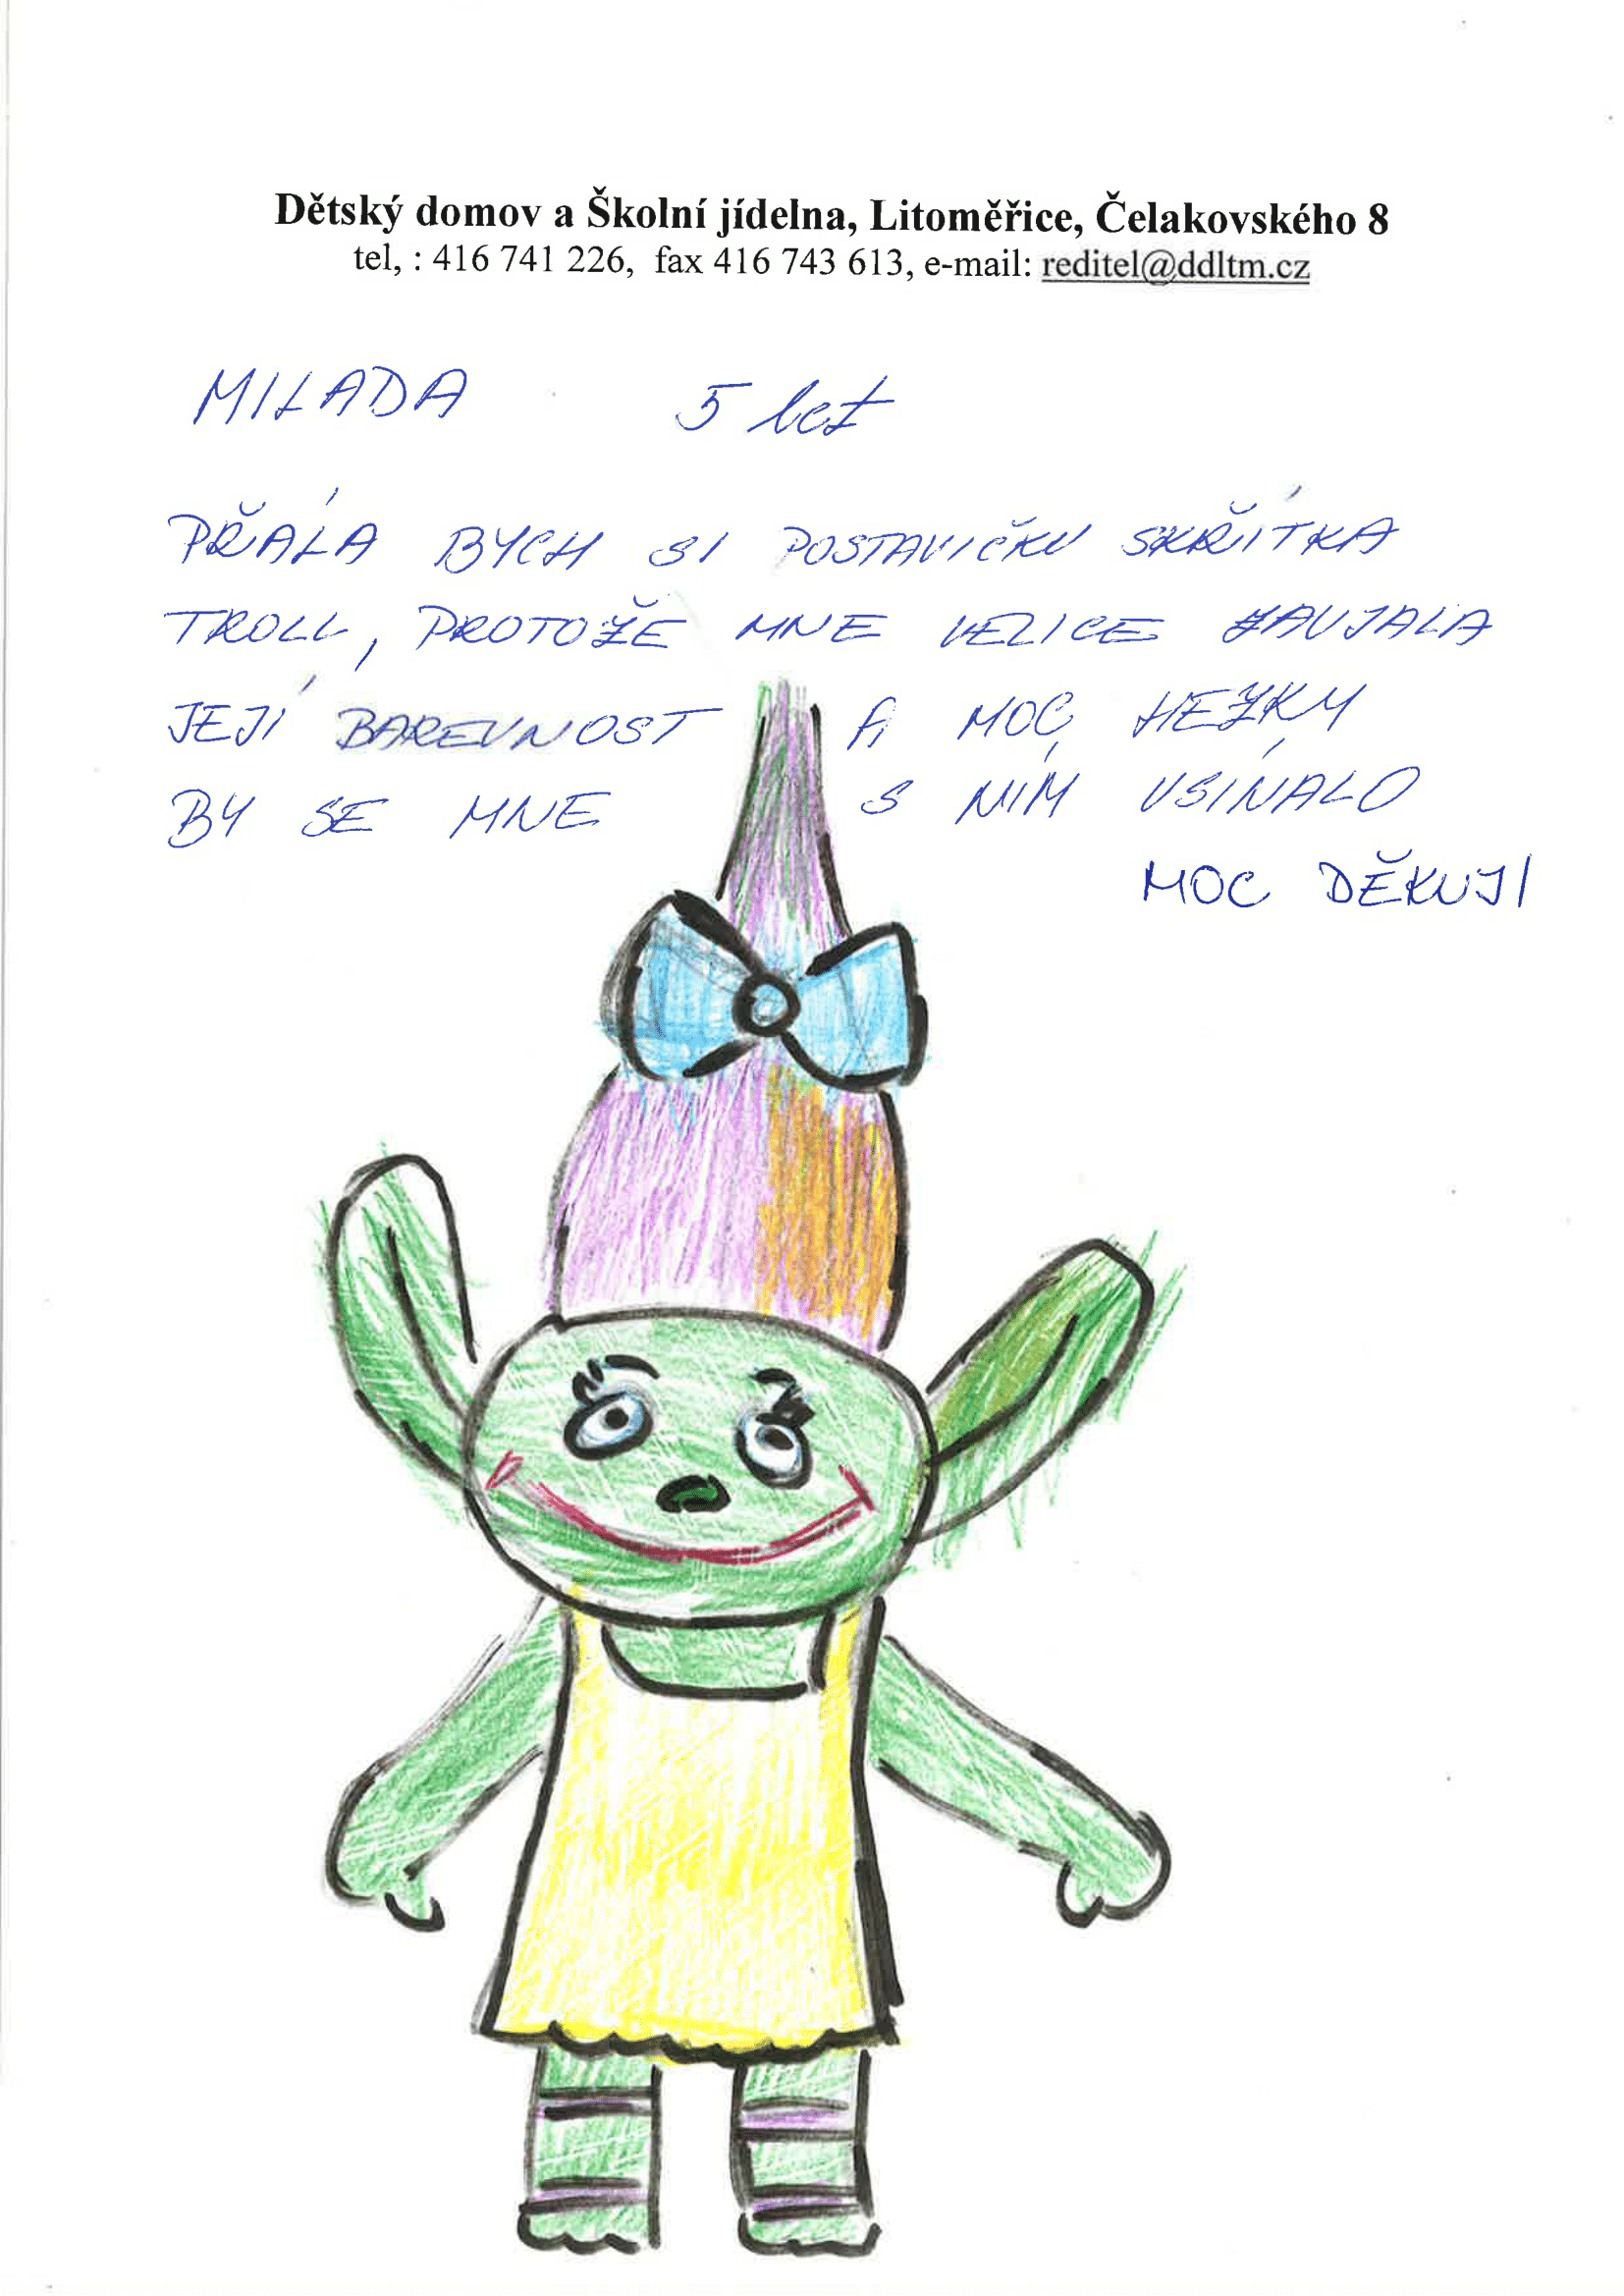 Dětský domov a Školní jídelna, Litoměřice, Čelakovského 8
tel, : 416 741 226, fax 416 743 613, e-mail: reditel@ddltm.cz
MILADA 5 let
PŘÁLA BYCH SI POSTAVIČKU SKŘÍTKA
TROLL, PROTOŽE MNE VELICE ZAUJALA
JEJÍ BAREVNOST A MOC HEZKY
BY SE MNE S NÍM USÍNALO
MOC DĚKUJI